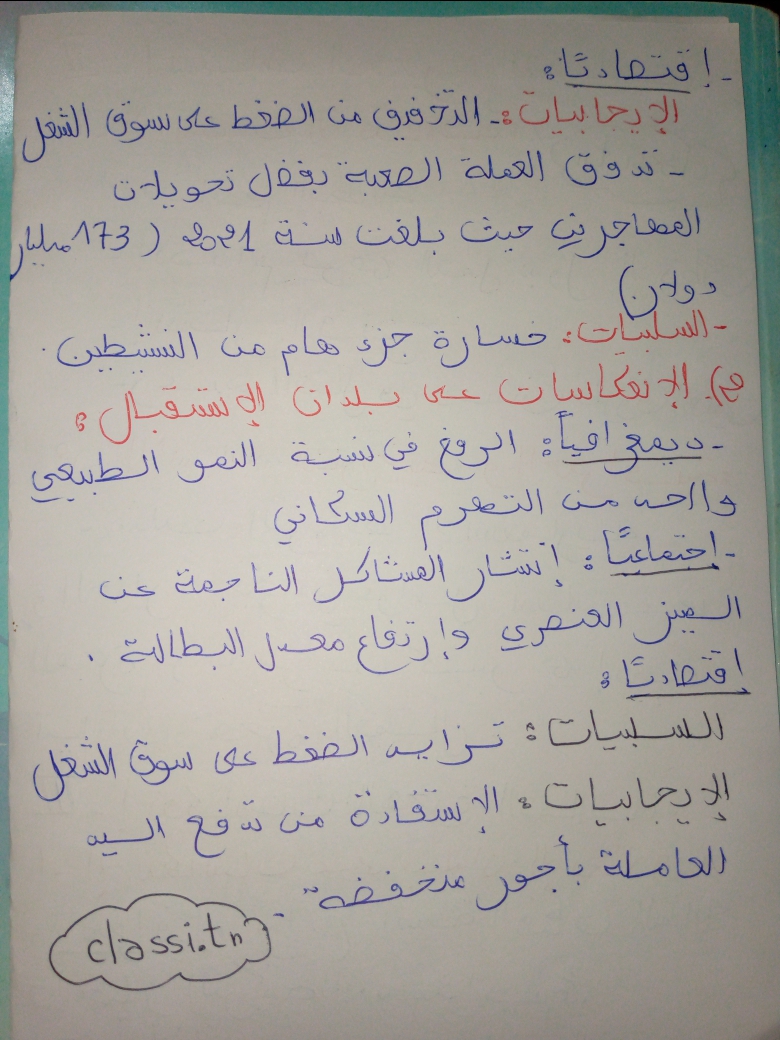 - إقتصاديًا:
الإيجابيات: - التخفيف من الضغط على سوق الشغل
- تدفق العملة الصعبة بفضل تحويلات
المهاجرين حيث بلغت سنة 2021 (173 مليار
دولار)
- السلبيات: خسارة جزء هام من النشيطين.
2). الإنعكاسات على بلدان الإستقبال:
- ديمغرافياً: الرفع في نسبة النمو الطبيعي
والحد من التهرم السكاني
- إجتماعيًا: إنتشار المشاكل الناجمة عن
الميز العنصري وإرتفاع معدل البطالة.
إقتصاديًا:
السلبيات: تزايد الضغط على سوق الشغل
الإيجابيات: الإستفادة من تدفع اليد
العاملة بأجور منخفضة.
classi.tn